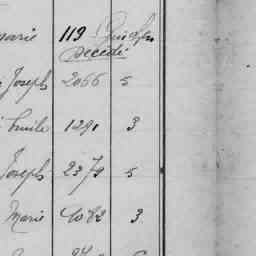 Marie 119
Décédé
Joseph 2066 5
Emile 1291 3
Joseph 2379 5
Marie 4082 3